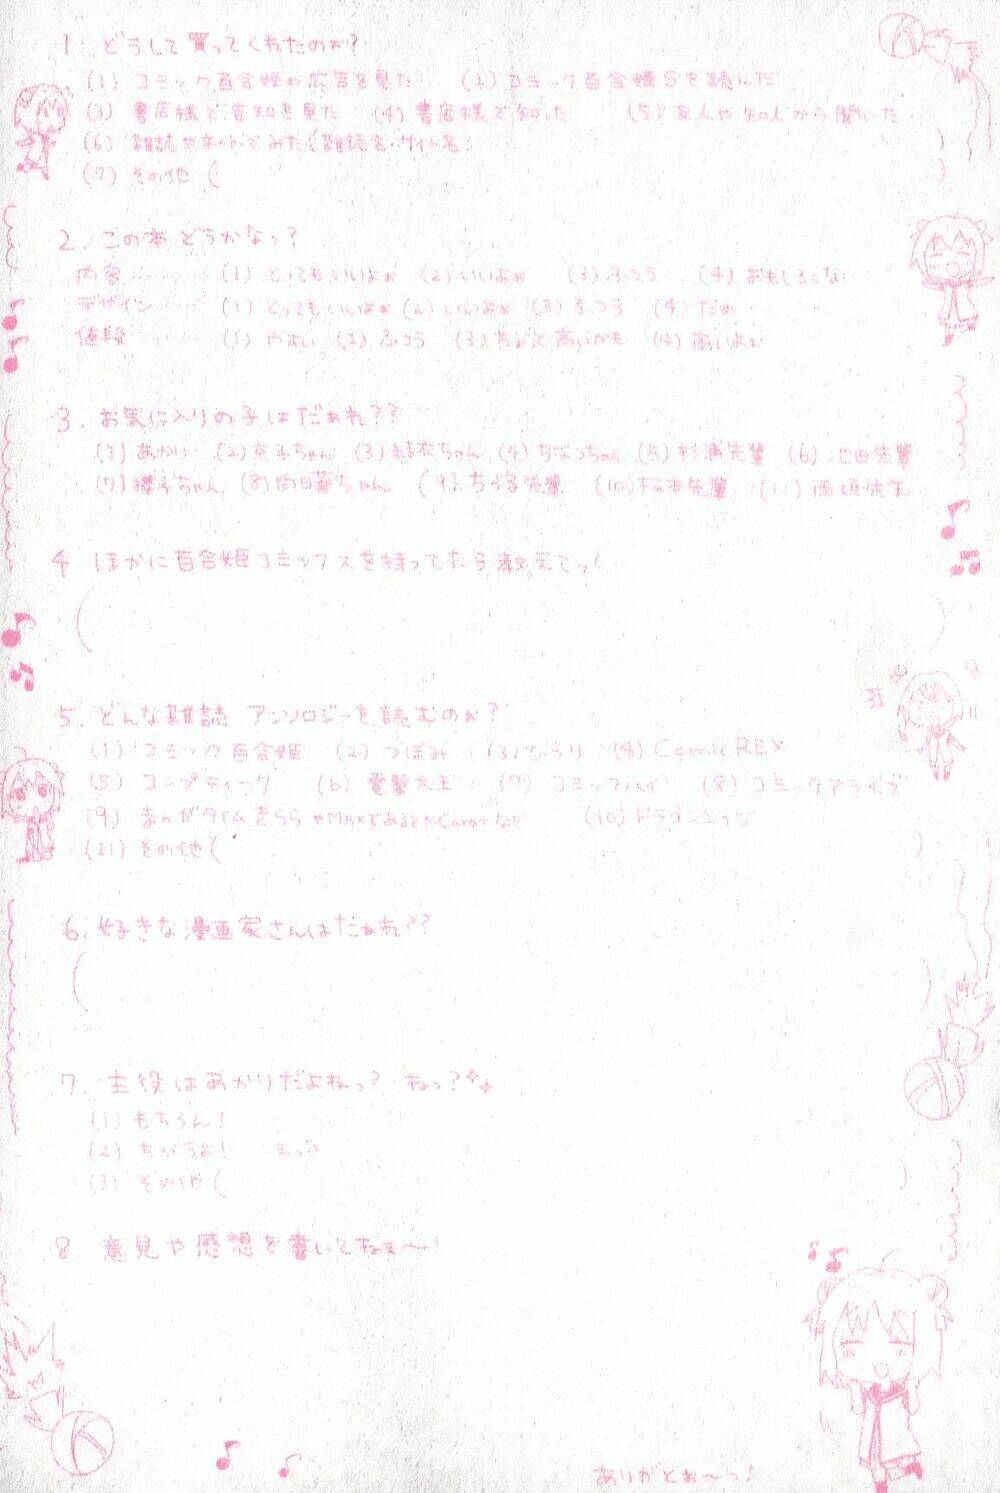 1. どうして買ってくれたのぉ?
(1) コミック百合姫の広告を見た (2) コミック百合姫Sを読んだ
(3) 書店様で告知を見た (4) 書店様で知った (5) 友人や知人から聞いた
(6) 雑誌やネットでみた(雑誌名・サイト名: )
(7) その他 ( )
2. この本どうかなっ?
内容 (1) とってもいいよぉ (2) いいよぉ (3) ふつう (4) おもしろくない
デザイン (1) とってもいいよぉ (2) いいよぉ (3) ふつう (4) だめ
値段 (1) やすい (2) ふつう (3) ちょっと高いかも (4) 高いよぉ
3. お気に入りの子はだぁれ??
(1) あかり (2) 京子ちゃん (3) 結衣ちゃん (4) ちなつちゃん (5) 杉浦先輩 (6) 池田先輩
(7) 櫻子ちゃん (8) 向日葵ちゃん (9) ちとせ先輩 (10) 松本先輩 (11) 西垣先生
4 ほかに百合姫コミックスを持ってたら教えてっ!
( )
5. どんな雑誌 アンソロジーを読むのぉ?
(1) コミック百合姫 (2) つぼみ (3) ひらり (4) Comic REX
(5) コンプティーク (6) 電撃大王 (7) コミックハイ (8) コミックアライブ
(9) まんがタイムきららやMAXであるとかCaratなど (10) ドラゴンエイジ
(11) その他 ( )
6. 好きな漫画家さんはだぁれ??
( )
7. 主役はあかりだよねっ? ねっ?
(1) もちろん!
(2) ちがうよ!
(3) その他 ( )
8 意見や感想を書いてねぇ〜!
ありがとぉ〜っ!